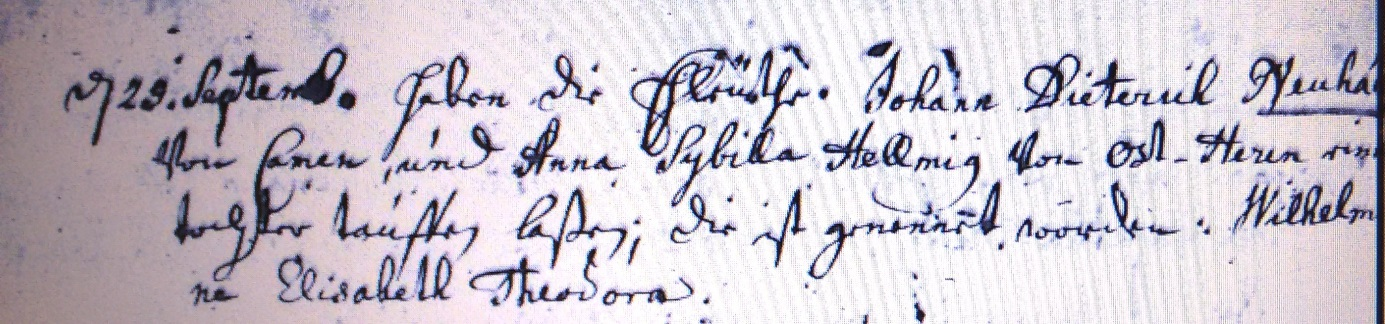 d 29. Septemb. haben die Eheleuthe. Johann Dieterich Neuha
Von Camen, und Anna Sybilla Hellmig Von Ost-Heren ein
tochter tauffen laßen; die ist genennet worden. Wilhelm
ne Elisabeth Theodora.